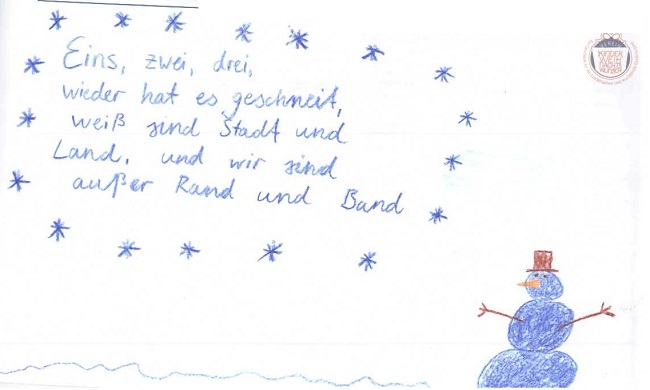 Eins, zwei, drei,
wieder hat es geschneit,
weiß sind Stadt und
Land, und wir sind
außer Rand und Band
KINDER